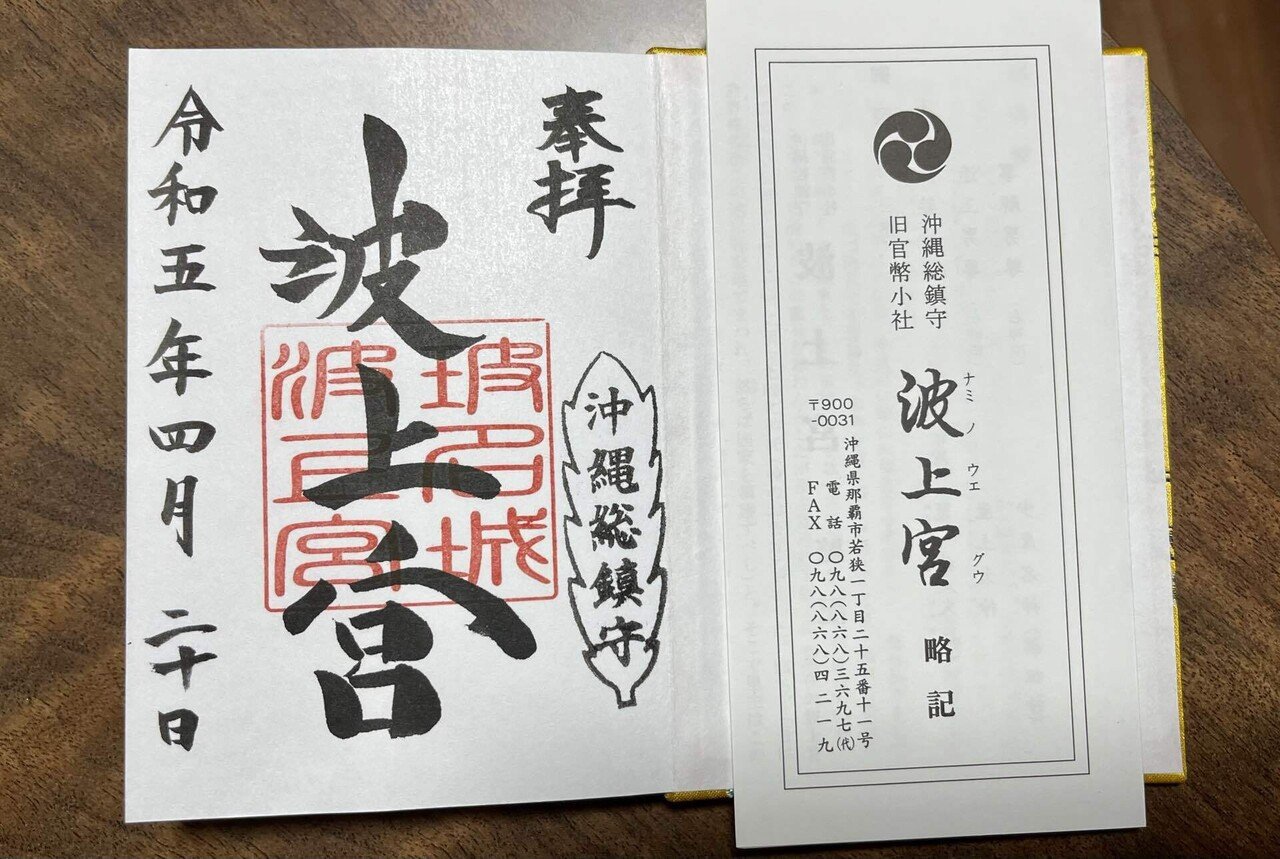 奉拝
沖縄総鎮守
波上宮
波上宮
令和五年四月二十日
沖縄総鎮守
旧官幣小社
ナミノウエグウ
波上宮 略記
〒900
-0031
沖縄県那覇市若狭一丁目二十五番十一号
電話 〇九八(八六八)三六九七(代)
FAX 〇九八(八六八)四二一九